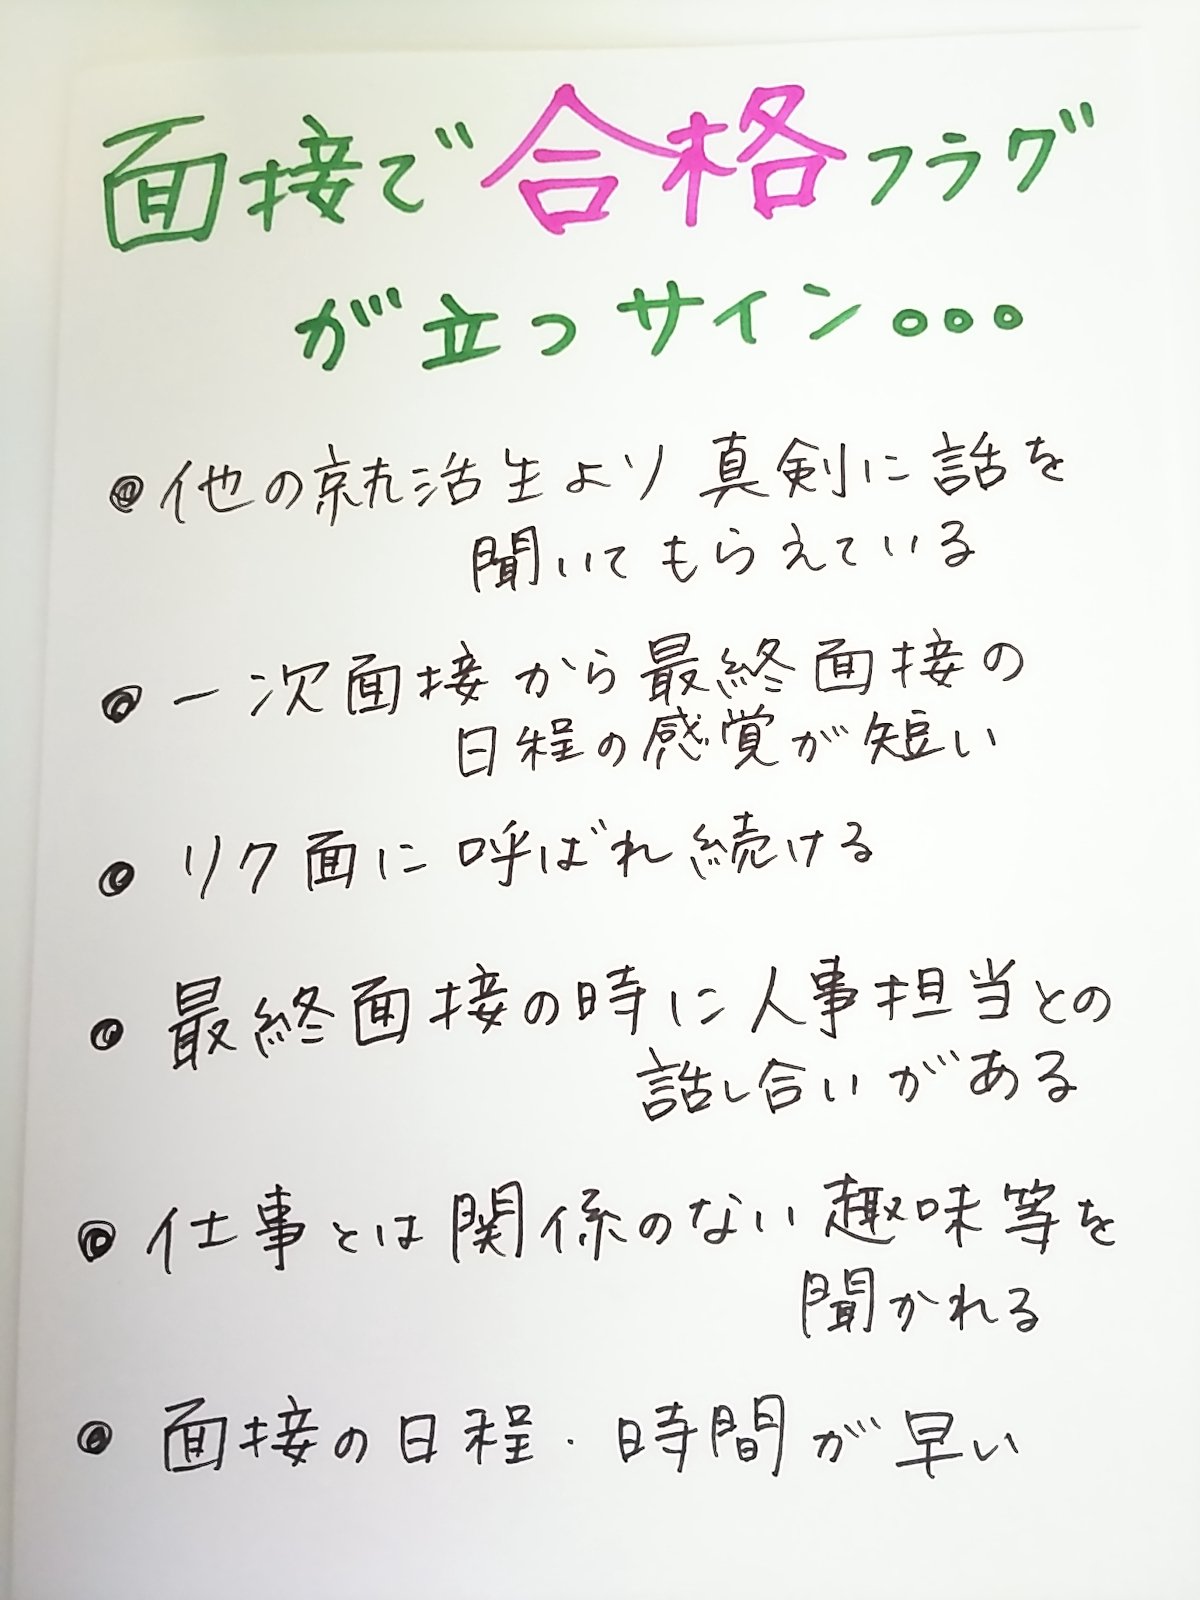 面接で合格フラグ
が立つサイン...
●他の就活生より真剣に話を
聞いてもらえている
●一次面接から最終面接の
日程の感覚が短い
●リク面に呼ばれ続ける
●最終面接の時に人事担当との
話し合いがある
●仕事とは関係のない趣味等を
聞かれる
●面接の日程・時間が早い